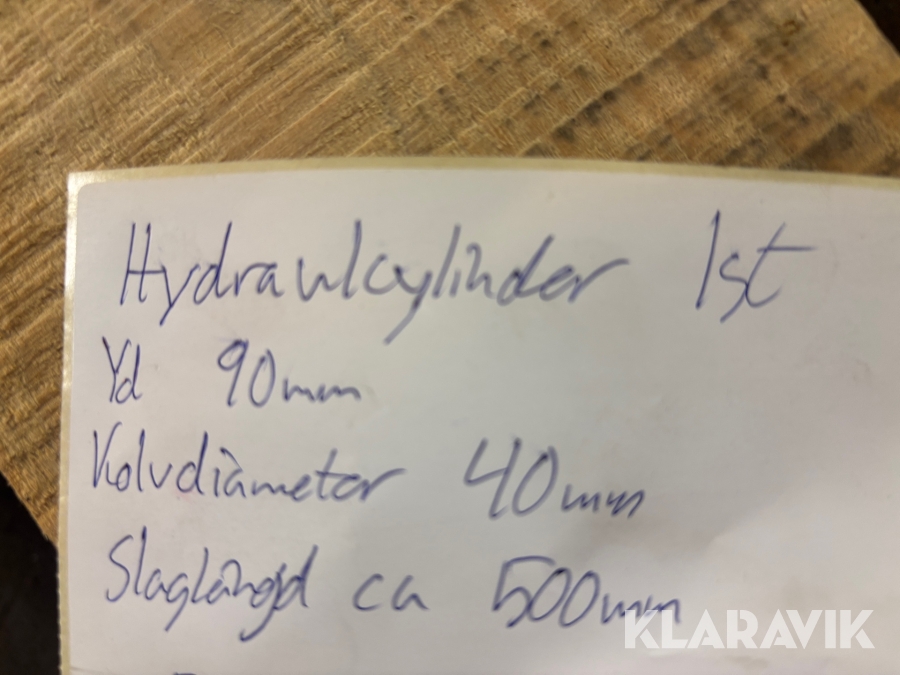 Hydraulcylinder 1st
Yd 90mm
Kolvdiameter 40mm
Slaglängd ca 500mm
KLARAVIK